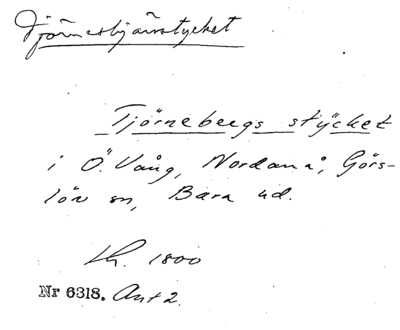 Tjörnebjärsstycket
Tjörnebergs stÿcket
i Ö. Vång, Nordanå, Görs-
löv sn, Bara hd.
Lh. 1800
Nr 6318. Akt 2.